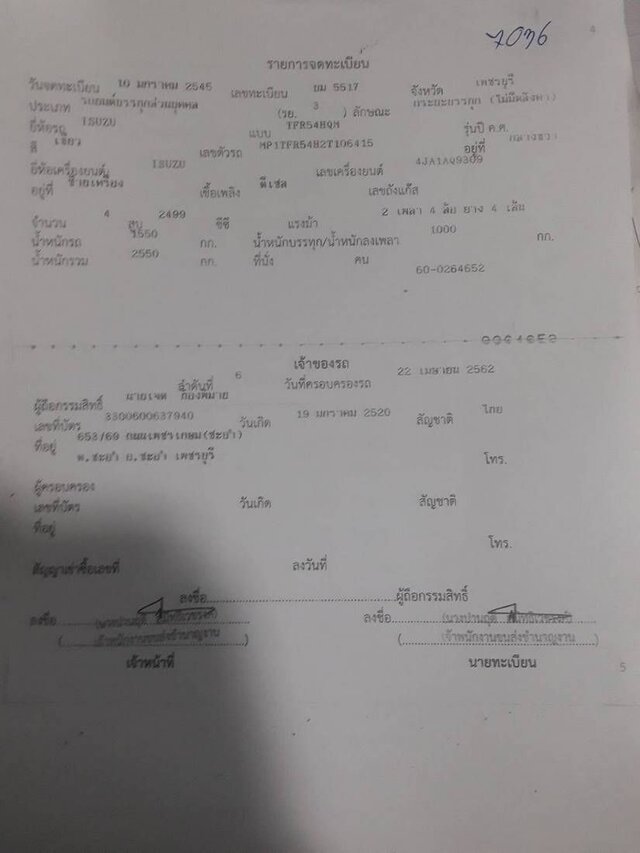 7036
4
รายการจดทะเบียน
วันจดทะเบียน 10 มกราคม 2545 เลขทะเบียน ยม 5517 จังหวัด เพชรบุรี
ประเภท รถยนต์บรรทุกส่วนบุคคล (รย. 3 ) ลักษณะ กระบะบรรทุก (ไม่มีหลังคา)
ยี่ห้อรถ ISUZU แบบ TFR54HQM รุ่นปี ค.ศ.
สี เขียว เลขตัวรถ MP1TFR54H2T106415 อยู่ที่ กลางขวา
ยี่ห้อเครื่องยนต์ ISUZU เลขเครื่องยนต์ 4JA1AQ9309
อยู่ที่ ซ้ายเครื่อง เชื้อเพลิง ดีเซล เลขถังแก๊ส
จำนวน 4 สูบ 2499 ซีซี แรงม้า 2 เพลา 4 ล้อ ยาง 4 เส้น
น้ำหนักรถ 1550 กก. น้ำหนักบรรทุก/น้ำหนักลงเพลา 1000 กก.
น้ำหนักรวม 2550 กก. ที่นั่ง คน
60-0264652
เจ้าของรถ
ลำดับที่ 6 วันที่ครอบครองรถ 22 เมษายน 2562
ผู้ถือกรรมสิทธิ์ นายเจต
เลขที่บัตร 3300600637940 วันเกิด 19 มกราคม 2520 สัญชาติ ไทย
ที่อยู่ 653/69 ถนนเพชรเกษม(ชะอำ)
ต.ชะอำ อ.ชะอำ เพชรบุรี โทร.
ผู้ครอบครอง
เลขที่บัตร วันเกิด สัญชาติ
ที่อยู่
โทร.
สัญญาเช่าซื้อเลขที่ ลงวันที่
ลงชื่อ ผู้ถือกรรมสิทธิ์
ลงชื่อ ลงชื่อ
(เจ้าพนักงานขนส่งชำนาญงาน) (เจ้าพนักงานขนส่งชำนาญงาน)
เจ้าหน้าที่ นายทะเบียน
5